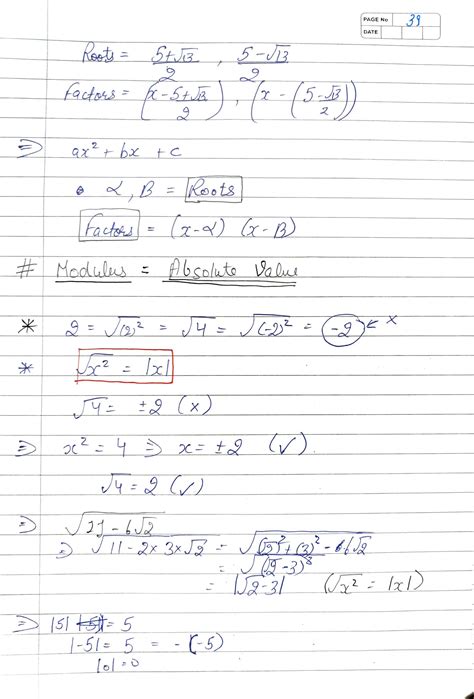 PAGE No 39
DATE
Roots = (5+√13)/2 , (5-√13)/2
Factors = (x-5+√13/2) , (x - (5-√13/2))
⇒ ax² + bx + c
• α, β = Roots
Factors = (x-α) (x-β)
# Modulus = Absolute Value
* 2 = √(2)² = √4 = √(-2)² = -2 ← x
* √x² = |x|
√4 = ±2 (x)
⇒ x² = 4 ⇒ x = ±2 (✓)
√4 = 2 (✓)
⇒ √11-6√2
⇒ √11-2×3×√2 = √(√2)²+(3)²-6√2
= √(√2-3)²
= |√2-3| (√x² = |x|)
⇒ |5| = 5
|-5| = 5 = -(-5)
|0| = 0